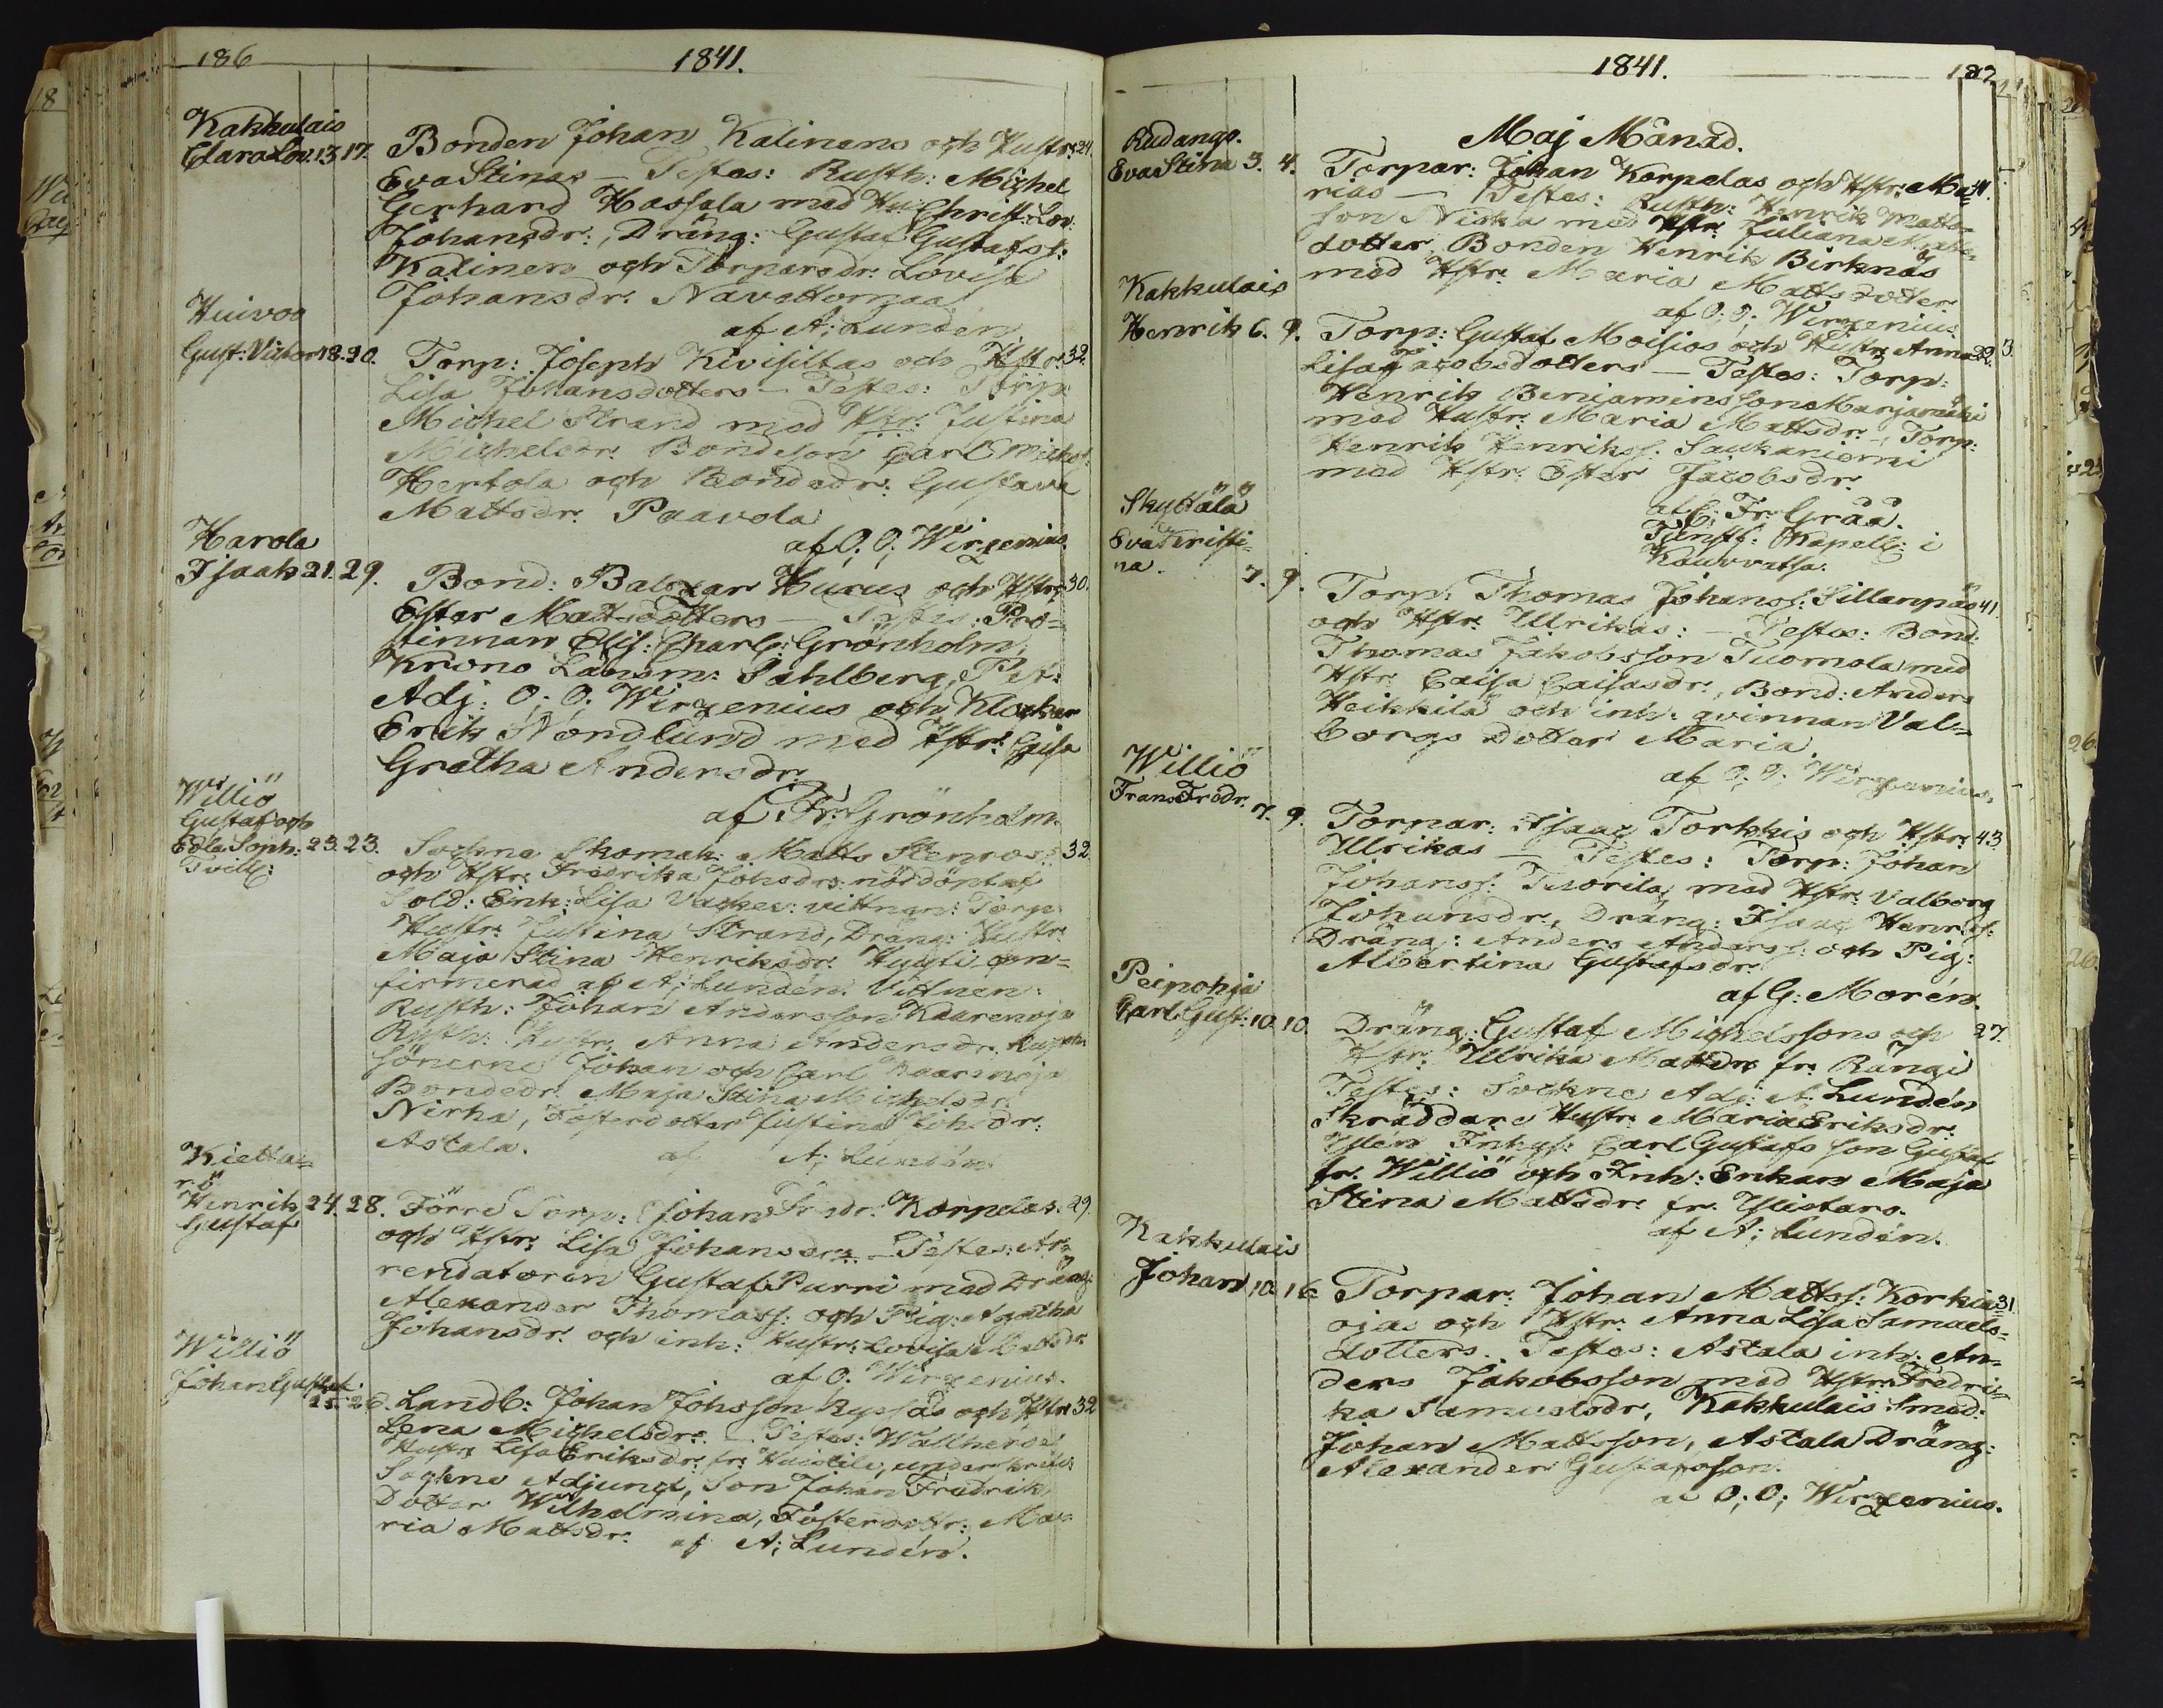 186
1841.
Kakkulais
Clara Lov. 13. 17. Bonden Johan Kalinens och Hustr: 24.
Eva Stinas — Testes: Rusth: Michel
Gerhard Hassala med Hu: Christ: Lov:
Johansdr:, Dräng: Gustaf Gustafss:
Kalinen och Torparedr: Lovisa
Johansdr.
af A: Lundén
Huivoo
Gust: Victor 18. 20. Torp: Joseph Kivisiltas och Hstr: 32.
Lisa Johansdotters — Testes: Torp:
Michel Strand med Hstr: Justina
Michelsdr. Bondeson Carl Michels:
Hertola och Bondedr: Gustava
Mattsdr. Paavola
af O: O: Wirzenius.
Harola
Isaak 21. 29. Bond: Balzar Hurus och Hstr: 30.
Ester Mattsdotters — Testes: Pro=
stinnan Elis: Charl: Grönholm,
Krono Länsm: Sahlberg, Past:
Adj: O: O: Wirzenius och Klockar
Erik Nordlund med Hstr: Caisa
Gretha Andersdr.
af C: Fr: Grönholm.
Williö
Gustaf och
Edla Soph: 23. 23. Sockne Skomak: Matts Stenros: 32
Tvill:
och Hstr: Fredrika Johsdrs: nöddöpt af
Sold: Enk: Lisa Vacker: vittnen: Torp:
Hustr: Justina Strand, Dräng: Hustr:
Maja Stina Henriksdr. con=
firmerad af A: Lundén. Vittnen:
Rusth: Johan Andersson Kaarenoja
Rusth: Hustr: Anna Andersdr. Rusth:
sönerne Johan och Carl Kaarenoja
Bondedr: Maja Stina Michelsdr:
Nirha, Fosterdotter Justina Johsdr:
Astala.
af A: Lundén.
Kietta=
rö
Henrik 24. 28. Förre Torp: Johan Fredr: Korpelas. 29.
Gustaf
och Hstr: Lisa Johansdrs. — Testes: Ar=
rendatoren Gustaf Purri med Dräng:
Alexander Thomass: och Pig: Agatha
Johansdr: och inh: Hustr: Lovisa Mattsdr.
af O: Wirzenius.
Williö
Johan Gustaf
25. 26. Landb: Johan Johsson och Hstr: 32
Lena Michelsdrs. — Testes: Wallherde
Hustr: Lisa Eriksdr: fr:
Sockne Adjunct, Son Johan Fredrik
Dotter Wilhelmina, Fosterdottr: Ma=
ria Mattsdr. af A: Lundén.
1841.
187
Maj Månad.
Rudango.
Eva Stina 3. 4. Torpar: Johan Korpelas och Hstr: Ma= 41.
rias — Testes: Rusth: Henrik Matts=
son Niska med Hstr: Juliana Matts=
dotter, Bonden Henrik Birknäs
med Hstr: Maria Mattsdotter
af O: O: Wirzenius
Kakkulais
Henrik 6. 9. Torp: Gustaf Moisios och Hustr: Anna 22.
Lisa Jacobsdotters — Testes: Torp:
Henrik Benjaminsson Marjamäki
med Hustr: Maria Mattsdr. — Torp:
Henrik Henrikss: Saukaniemi
med Hstr: Ester Jacobsdr.
af C: Fr: Gråå.
Tjenstf: Kapell: i
Kauvatsa.
Skyttälä
Eva Cristi=
na. 7. 9. Torp: Thomas Johanss: Sillanpääs 41
och Hstr: Ulrikas: — Testes: Bond:
Thomas Jakobsson Tuomola med
Hstr: Caisa Caisasdr., Bond: Anders
Heikkilä och inh: qvinnan Val=
borgs dotter Maria.
af O: O: Wirzenius.
Williö
Frans Fredr. 7. 9. Torpar: Isaac Torkkis och Hstr: 43.
Ulrikas — Testes: Torp: Johan
Johanss: Tuorila, med Hstr: Valborg
Johansdr., Dräng: Isaac Henr:ss:
Dräng: Anders Anderss: och Pig:
Albertina Gustafsdr.
af G: Morén.
Peipohja
Carl Gust: 10. 10. Dräng: Gustaf Michelssons och 27.
Hstr: Ulrika Mattsdrs fr: Rängi
Testes: Sockne Adj: A: Lundén
Skräddare Hustr: Maria Eriksdr.
Carl Gustafs son Gustaf
fr. Williö och Inh: Enkan Maja
Stina Mattsdr. fr. Ylistaro.
af A: Lundén.
Kakkulais
Johan 10. 16. Torpar: Johan Mattss: Korkia= 31
ojas och Hstr: Anna Lisa Samuels=
dotters. Testes: Astala inh: An=
ders Jakobsson med Hstr: Fredri=
ka Samuelsdr, Kakkulais Smed:
Johan Mattsson, Astala Dräng:
Alexander Gustafsson.
af O: O: Wirzenius.